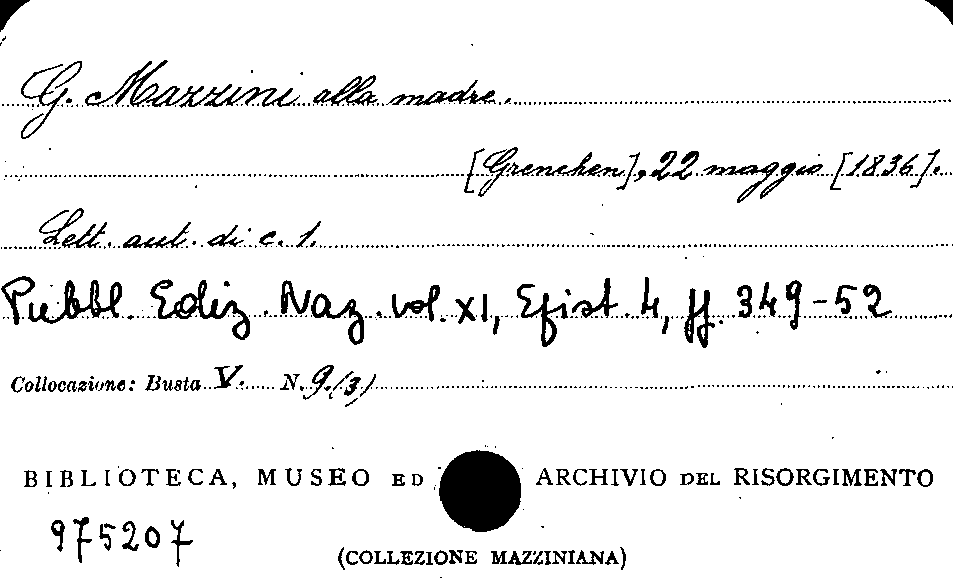 G. Mazzini alla madre.
[Grenchen], 22 maggio [1836].
Lett. aut. di c. 1.
Pubbl. Ediz. Naz. vol. XI, Epist. 4, pp. 349-52
Collocazione: Busta V. N. 9.(3)
BIBLIOTECA, MUSEO ED ARCHIVIO DEL RISORGIMENTO
975207
(COLLEZIONE MAZZINIANA)